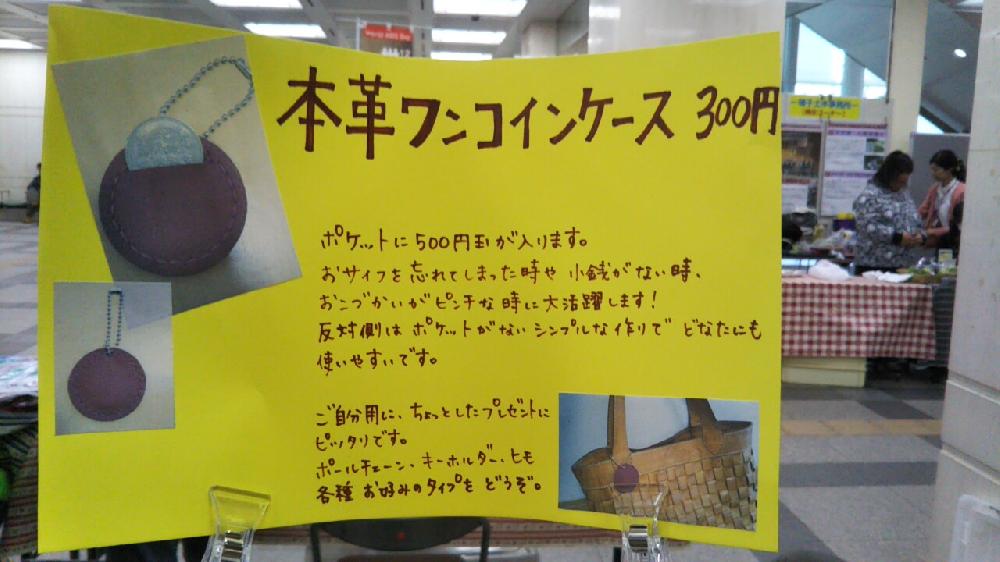 本革ワンコインケース 300円
ポケットに500円玉が入ります。
おサイフを忘れてしまった時や 小銭がない時、
おこづかいがピンチな時に大活躍します!
反対側は ポケットがない シンプルな作りで どなたにも
使いやすいです。
ご自分用に、ちょっとしたプレゼントに
ピッタリです。
ボールチェーン、キーホルダー、ヒモ
各種 お好みのタイプを どうぞ。